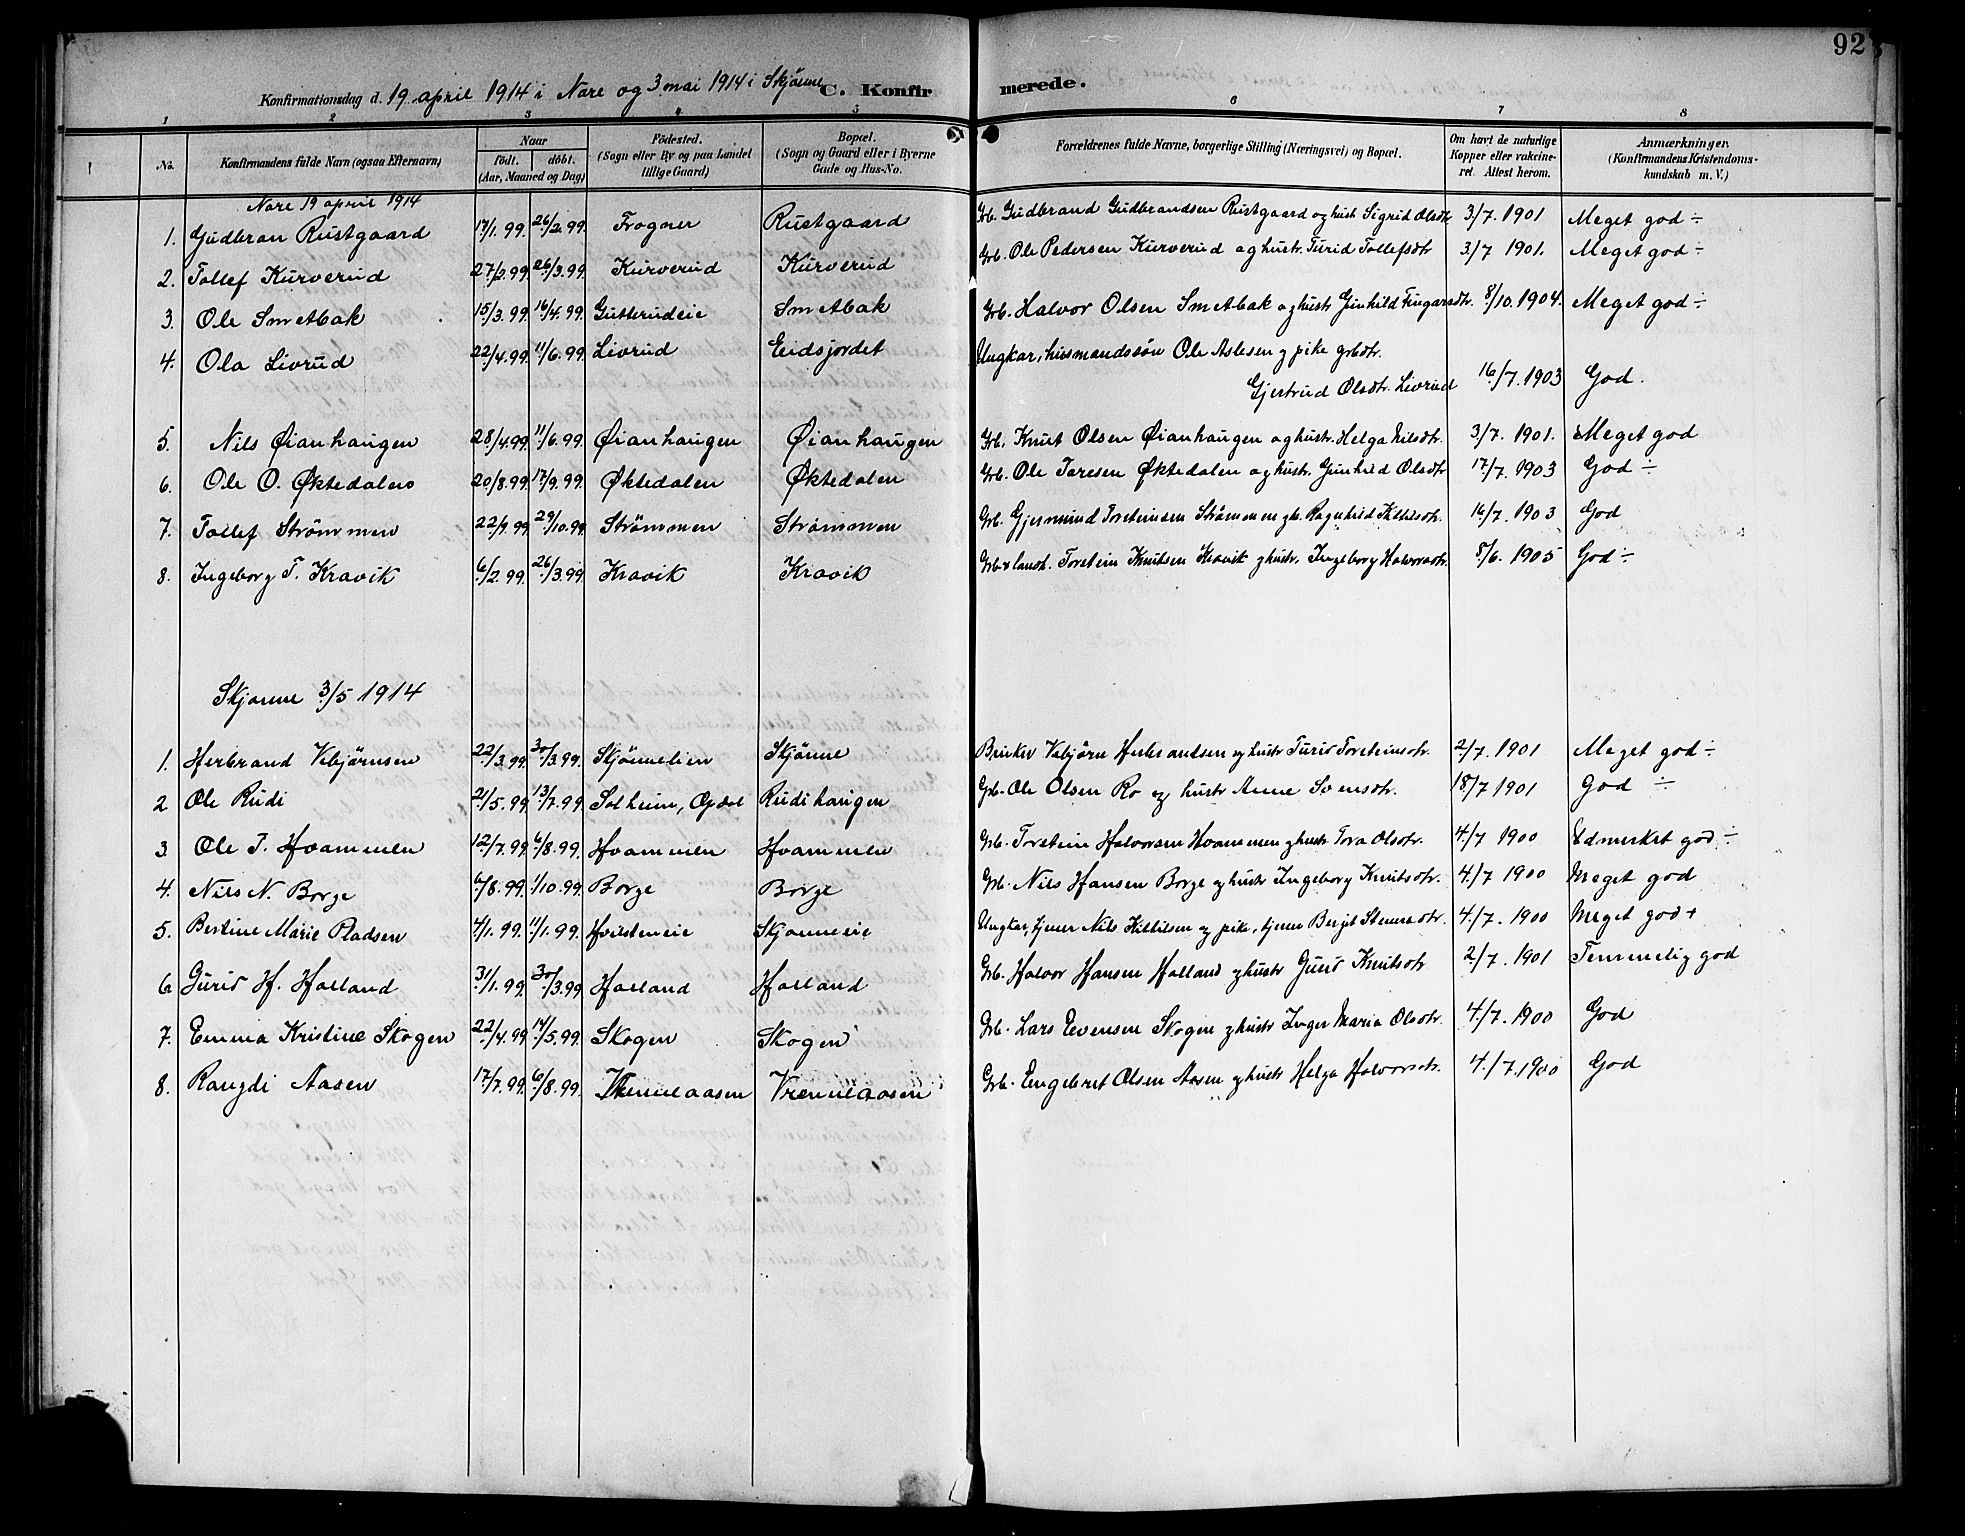 92
Konfirmationsdag d. 19. april 1914 i Nore og 3 mai 1914 i Skjønne C. Konfirmerede.
1 2 3 4 5 6 7 8
No. Konfirmandens fulde Navn (ogsaa Efternavn) Naar födt. döbt. (Aar, Maaned og Dag) Födested. (Sogn eller By og paa Landet tillige Gaard) Bopæl. (Sogn og Gaard eller i Byerne Gade og Hus-No. Forældrenes fulde Navne, borgerlige Stilling (Næringsvei) og Bopæl. Om havt de naturlige Kopper eller vakcineret. Attest herom. Anmærkninger. (Konfirmandens Kristendomskundskab m. V.)
Nore 19 april 1914
1. Gudbran Rustgaard 17/1. 99. 26/2. 99. Frogner Rustgaard Grb. Gudbrand Gudbrandsen Rustgaard og hust. Sigrid Olsdtr 3/7. 1901 Meget god ÷
2. Tollef Kurverud 27/2.99. 26/3.99. Kurverud Kurverud Grb. Ole Pedersen Kurverud og hustr. Turid Tollefsdtr 3/7 1901. Meget god ÷
3. Ole Smetbak 15/3. 99. 16/4. 99. Gutterudeie Smetbak Grb. Halvor Olsen Smetbak og hustr Gunhild Fingarsdtr. 8/10. 1904. Meget god ÷
4. Ola Livrud 22/4.99. 11/6. 99. Livrud Eidsjordet Ungkar, husmandssøn Ole Aslesen og pike grbdtr.
Gjertrud Olsdtr. Livrud 16/7. 1903 God.
5. Nils Øianhaugen 28/4.99. 11/6. 99. Øianhaugen Øianhaugen Grb. Knut Olsen Øianhaugen og hustr. Helga Nilsdtr. 3/7. 1901. Meget god
6. Ole O. Øktedalen 20/8.99. 17/9. 99. Øktedalen Øktedalen Grb. Ole Toresen Øktedalen og hustr. Gunhild Olsdtr 17/7. 1903 God ÷
7. Tollef Strömmen 22/9. 99 29/10. 99. Strömmen Strömmen Grb. Gjermund Torsteinsen Strømmen og h. Ragnhild Kittilsdtr. 16/7. 1903 God
8. Ingeborg T. Kravik 6/2. 99. 26/3. 99. Kravik Kravik Grb & landh. Torstein Knutsen Kravik og hustr. Ingeborg Halvorsdtr. 8/6. 1905 God ÷
Skjønne 3/5 1914
1. Herbrand Vebjørnsen 22/3. 99. 30/3. 99. Skjønnelien Skjønne Bruker Vebjørn Herbrandsen og hustr Turid Torsteinsdtr. 2/7. 1901 Meget god ÷
2 Ole Rudi 21/5. 99. 13/7. 99. Solheim, Opdal Rudihaugen Grb. Ole Olsen Ro og hustr Anne Svensdtr. 18/7 1901 God ÷
3. Ole T. Hvammen 12/7. 99. 6/8. 99. Hvammen Hvammen Grb. Torstein Halvorsen Hvammen og hustr Tora Olsdtr. 4/7 1900 Udmerket god ÷
4. Nils N. Borge 6/8. 99. 1/10. 99. Borge Borge Grb. Nils Hansen Borge og hustr Ingeborg Knutsdtr. 4/7 1900 Meget god
5. Bertine Marie Pladsen 4/1. 99. 11/1. 99. Hvisteneie Skjønneeie Ungkar, tjener Nils Kittilsen og pike, tjener Bergit Steinersdtr. 4/7. 1900 Meget god +
6 Gurid H. Holland 31/1. 99. 30/3. 99 Holland Holland Grb. Halvor Hansen Holland og hustr Guri Knutsdtr 2/7. 1901 Temmelig god
7. Emma Kristine Skogen 22/4. 99. 14/5. 99. Skogen Skogen Grb. Lars Evensen Skogen og hustr Inger Maria Olsdtr. 4/7. 1900 God
8. Rangdi Aasen 17/7. 99. 6/8. 99. Vrenneaasen Vrenneaasen Grb. Engebret Olsen Aasen og hustr Helga Halvorsdtr. 4./7. 1900 God